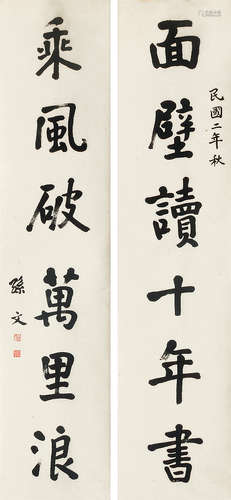 民國二年秋
面壁讀十年書
乘風破萬里浪
孫文